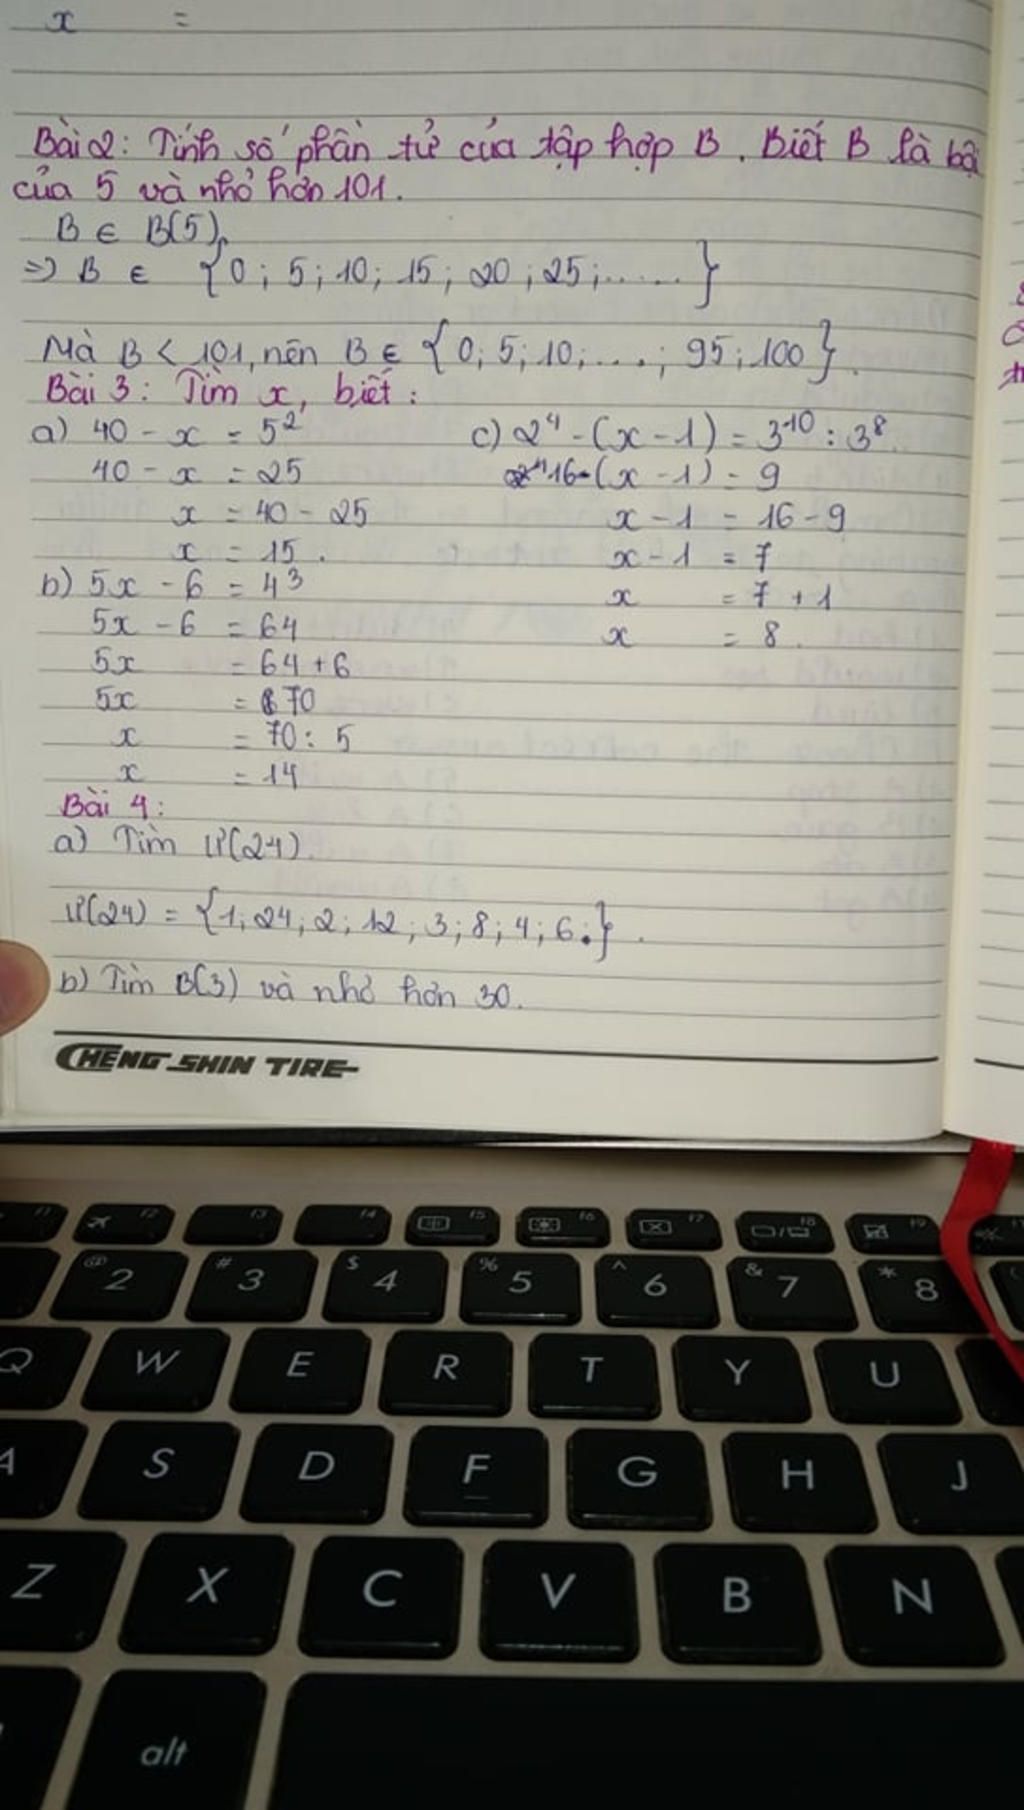 x =
Bài 2: Tính số phần tử của tập hợp B. Biết B là bội
của 5 và nhỏ hơn 101.
B ∈ B(5)
=> B ∈ {0; 5; 10; 15; 20; 25;......}
Mà B < 101, nên B ∈ {0; 5; 10; ...; 95; 100}.
Bài 3: Tìm x, biết:
a) 40 - x = 5²
40 - x = 25
x = 40 - 25
x = 15.
b) 5x - 6 = 4³
5x - 6 = 64
5x = 64 + 6
5x = 70
x = 70 : 5
x = 14
c) 2⁴ - (x - 1) = 3¹⁰ : 3⁸
16 - (x - 1) = 9
x - 1 = 16 - 9
x - 1 = 7
x = 7 + 1
x = 8.
Bài 4:
a) Tìm Ư(24).
Ư(24) = {1; 24; 2; 12; 3; 8; 4; 6.}.
b) Tìm B(3) và nhỏ hơn 30.
CHENG SHIN TIRE
F1 F2 F3 F4 F5 F6 F7 F8 F9
@ 2 # 3 $ 4 % 5 ^ 6 & 7 * 8 (
Q W E R T Y U
A S D F G H J
Z X C V B N
alt